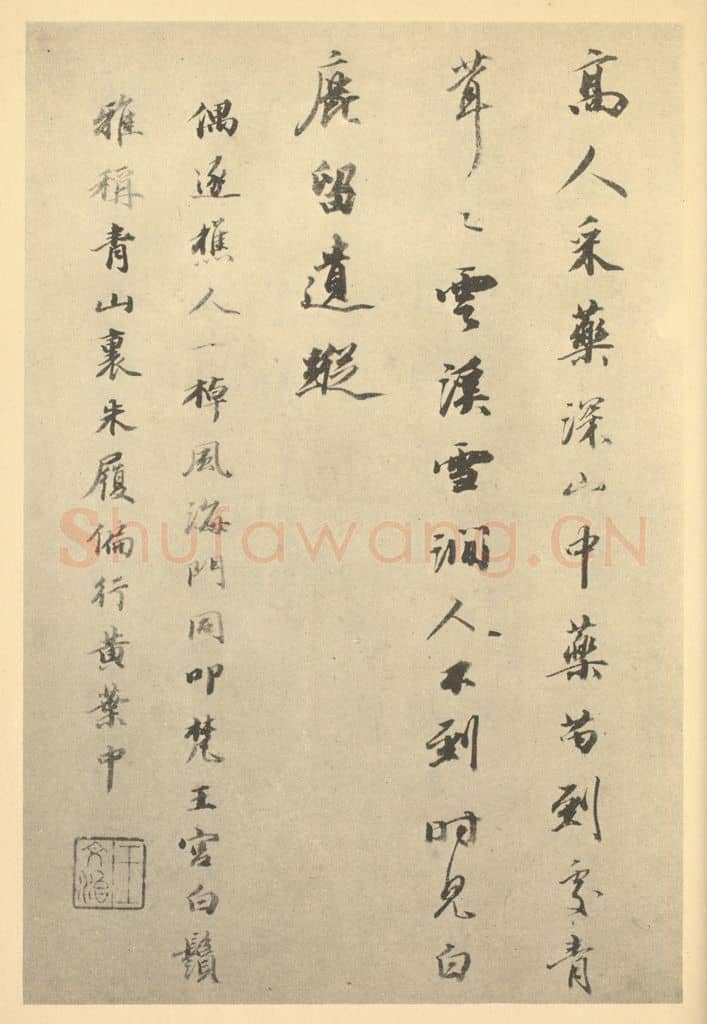 高人采藥深山中藥苗到處青
茸々雲溪雪澗人不到時見白
鹿留遺蹤
偶逐樵人一棹風海門同叩梵王宮白鬚
雅稱青山裏朱履偏行黃葉中
王文治
Shufawang.CN